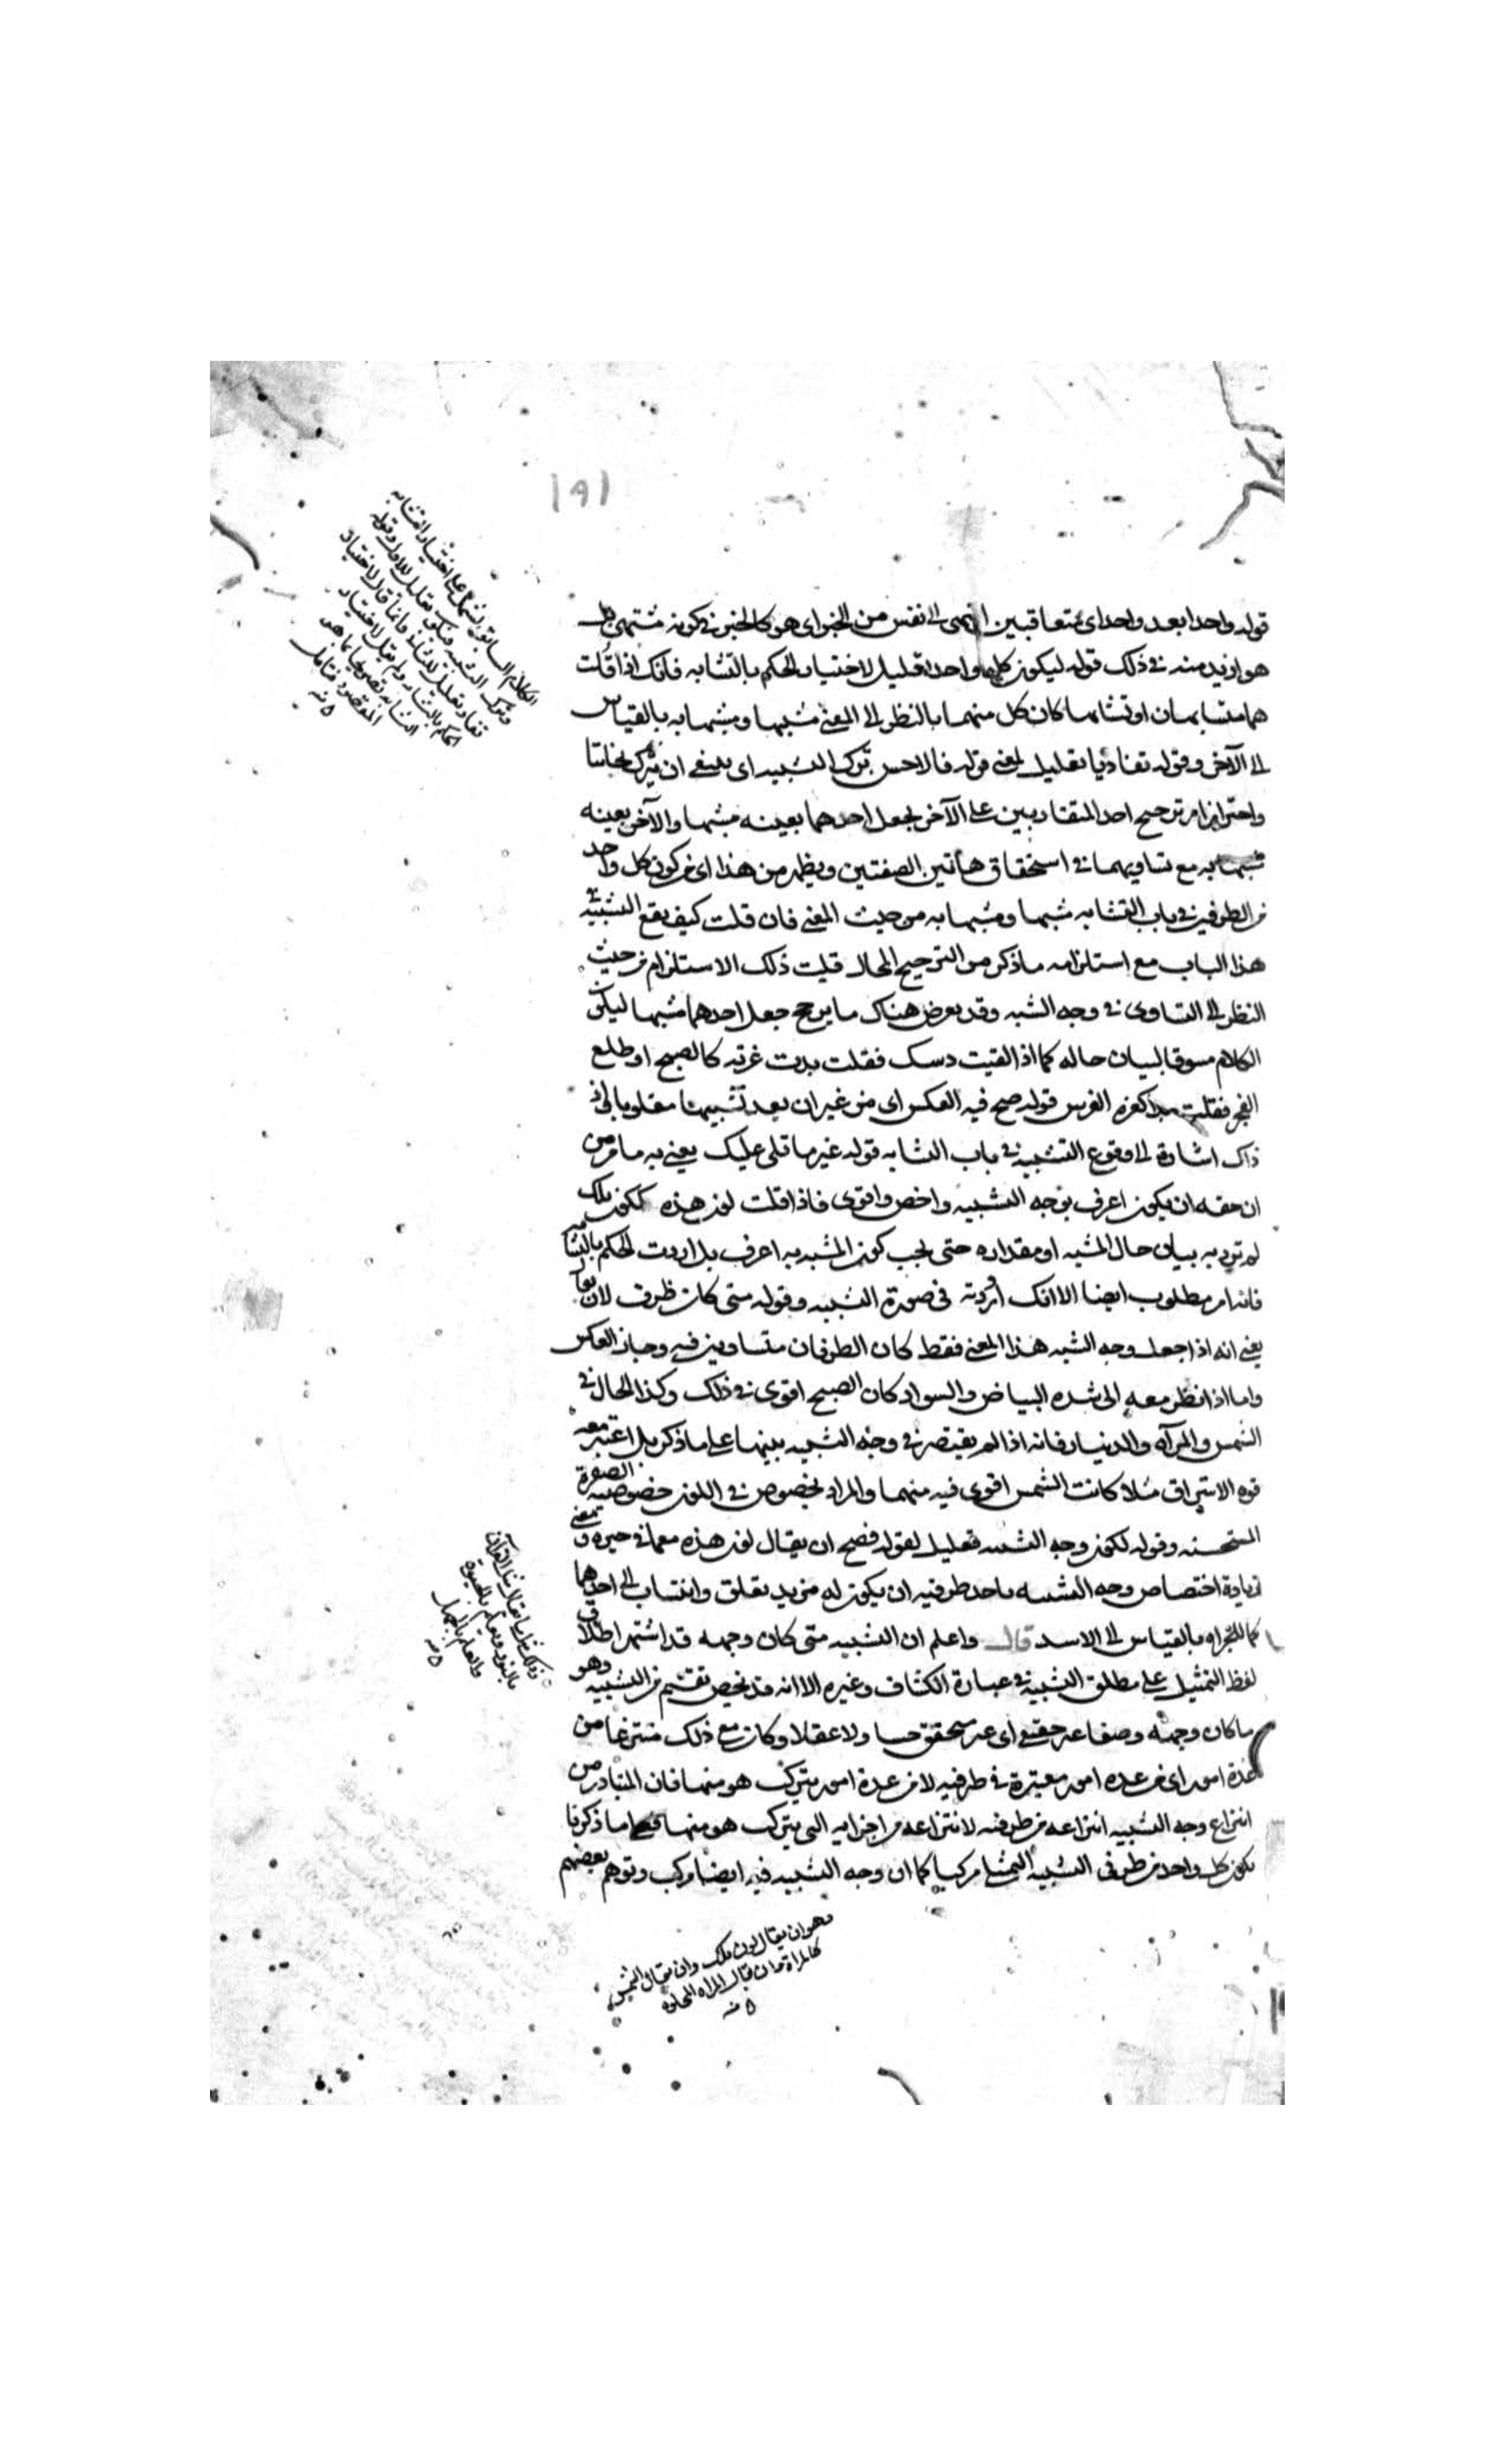 ١٩١
قوله واحدا بعد واحد اى متعاقبين اشهى الى نفس من الخبز اى هو كالخبز فى كونه مشتهى بل
هو ازيد منه فى ذلك قوله ليكون كل واحد تعليل لاختيار الحكم بالتشابه فانك اذا قلت
هما متشابهان او تشابها كان كل منهما بالنظر الى المعنى مشبها ومشبها به بالقياس
الى الآخر وقوله تفاديا تعليل لمعنى قوله فالاحسن ترك التشبيه اى ينبغى ان يترك
واحترازا من ترجيح احد المتقاربين على الآخر بجعل احدهما بعينه مشبها والآخر بعينه
مشبها به مع تساويهما فى استحقاق هاتين الصفتين ويظهر من هذا اى من كون كل واحد
من الطرفين فى باب التشابه مشبها ومشبها به من حيث المعنى فان قلت كيف يقع التشبيه فى
هذا الباب مع استلزامه ما ذكر من الترجيح المحال قلت ذلك الاستلزام من حيث
النظر الى التساوى فى وجه الشبه وقد يعرض هناك ما يرجح جعل احدهما مشبها ليكون
الكلام مسوقا لبيان حاله كما اذا لقيت فقلت بدت غرته كالصبح او طلع
الفجر فقلت كغرة الفرس قوله صح فيه العكس اى من غير ان يعد تشبيها مقلوبا
ذاك اشارة الى وقوع التشبيه فى باب التشابه قوله غير ما تلى عليك يعنى به ما مر من
ان حقه ان يكون اعرف بوجه التشبيه واخص واقوى فاذا قلت لون هذه كلون تلك
لم ترد به بيان حال المشبه او مقداره حتى يجب كون المشبه به اعرف بل اردت الحكم بالتشابه
فانه امر مطلوب ايضا الا انك اوردته فى صورة التشبيه وقوله متى كان ظرف لان يقال
يعنى انه اذا جعل وجه الشبه هذا المعنى فقط كان الطرفان متساويين فيه وجاز العكس
واما اذا نظر معه الى شدة البياض والسواد كان الصبح اقوى فى ذلك وكذا الحال فى
الشمس والمرآة والدينار فانه اذا لم يقتصر فى وجه التشبيه بينها على ما ذكر بل اعتبر معه
قوة الاشراق مثلا كانت الشمس اقوى فيه منهما والمراد بخصوص فى اللون خصوصية الصفرة
المستحسنة وقوله لكون وجه التشبيه تعليل لقوله فصح ان يقال لون هذه
زيادة اختصاص وجه التشبيه باحد طرفيه ان يكون له مزيد تعلق وانتساب الى احدهما
كما للجراة بالقياس الى الاسد قال واعلم ان التشبيه متى كان وجهه قد اشتهر اطلاق
لفظ التمثيل على مطلق التشبيه فى عبارة الكشاف وغيره الا انه قد يخص بقسم من التشبيه وهو
ما كان وجهه وصفا غير حقيقى اى غير متحقق حسا ولا عقلا وكان مع ذلك منتزعا من
عدة امور اى من عدة امور معتبرة فى طرفيه لا من عدة امور يتركب هو منها فان المتبادر من
انتزاع وجه التشبيه انتزاعه من طرفيه لا انتزاعه من اجزائه التى يتركب هو منها فعلى ما ذكرنا
يكون كل واحد من طرفى التشبيه التمثيلى مركبا كما ان وجه التشبيه فيه ايضا مركب وتوهم بعضهم
الكلام السابق يشتمل على اختيار التشابه
وترك التشبيه فيكون تعليل للاول وقوله
تفاديا تعليل للثانى وانما قال لاختيار
الحكم بالتشابه ولم يقل لاختيار
التشابه تصريحا بما هو
المقصود فتأمل
منه
بالنور والعلم بالحيوة
والعلم بالجهل
منه
وهو ان يقال لون تلك وان يقال الشمس
كالمراة وان يقال المراة المجلوة
منه